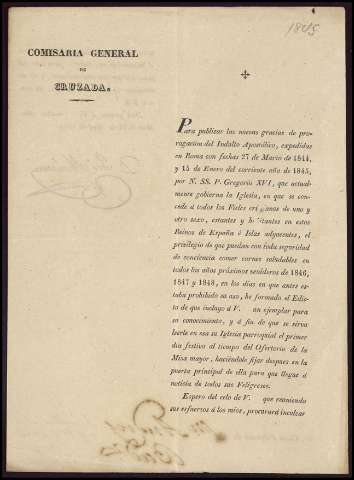 1845
COMISARIA GENERAL
DE
CRUZADA.
Para publicar las nuevas gracias de pro-
rogacion del Indulto Apostólico, expedidas
en Roma con fechas 27 de Marzo de 1844,
y 15 de Enero del corriente año de 1845,
por N. SS. P. Gregorio XVI, que actual-
mente gobierna la Iglesia, en que se con-
cede á todos los Fieles cristianos de uno y
otro sexo, estantes y habitantes en estos
Reinos de España é Islas adyacentes, el
privilegio de que puedan con toda seguridad
de conciencia comer carnes saludables en
todos los años próximos venideros de 1846,
1847 y 1848, en los dias en que antes es-
taba prohibido su uso, he formado el Edic-
to de que incluyo á V. un ejemplar para
su conocimiento, y á fin de que se sirva
leerle en esa su Iglesia parroquial el primer
dia festivo al tiempo del Ofertorio de la
Misa mayor, haciéndole fijar despues en la
puerta principal de ella para que llegue á
noticia de todos sus Feligreses.
Espero del celo de V. que reuniendo
sus esfuerzos á los mios, procurará inculcar